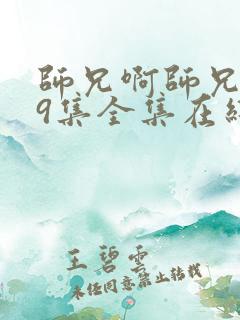 師兄啊師兄
9集全集在線
王碧雲
未經同意禁止轉載